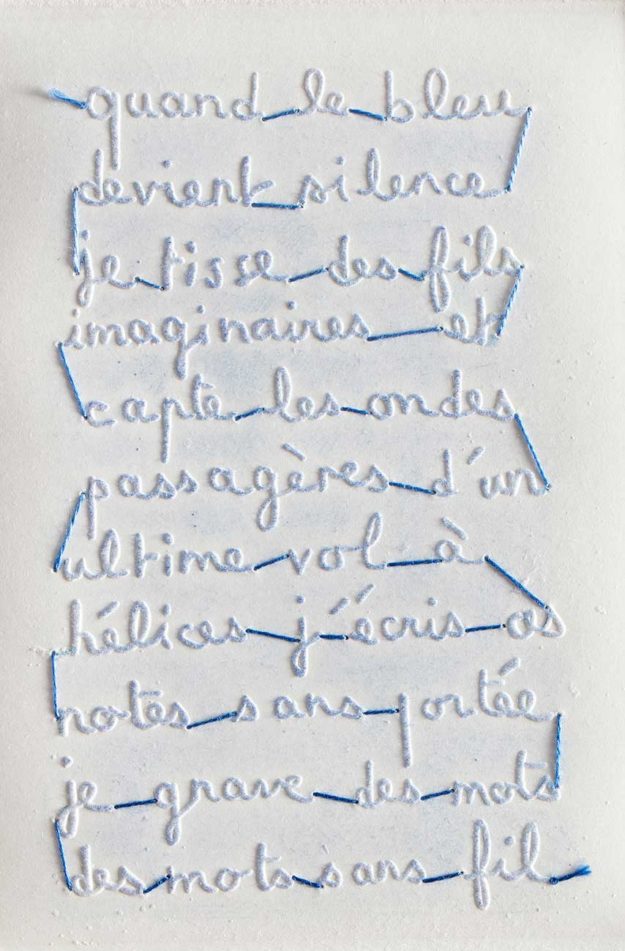 quand le bleu
devient silence
je tisse des fils
imaginaires et
capte les ondes
passagères d'un
ultime vol à
hélices j'écris
notes sans portée
je grave des mots
des mots sans fil